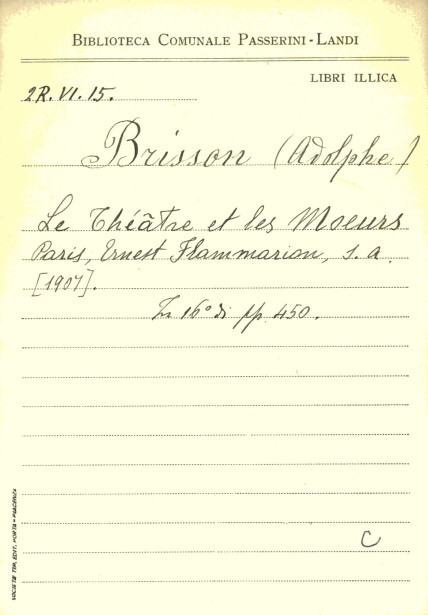 BIBLIOTECA COMUNALE PASSERINI-LANDI
LIBRI ILLICA
2R.VI.15.
Brisson (Adolphe)
Le Théâtre et les Moeurs
Paris, Ernest Flammarion, s. a.
[1907].
In 16° di pp. 450.
C
SOCIETÀ TIP. EDIT. PORTA - PIACENZA